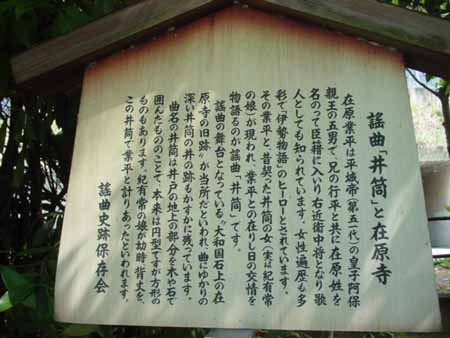 謡曲「井筒」と在原寺
在原業平は平城帝（第五一代）の皇子阿保
親王の五男で、兄の行平と共に在原姓を
名のって臣籍に入り右近衛中将となり歌
人としても知られています。女性遍歴も多
彩で「伊勢物語」のヒーローとされています。
その業平と、昔契った井筒の女（実は紀有常
の娘）が現われ、業平との在りし日の交情を
物語るのが謡曲「井筒」です。
謡曲の舞台となっている〝大和国石上の在
原寺の旧跡〟が当所だといわれ、曲にゆかりの
深い井筒の井の跡もかすかに残っています。
曲名の井筒は井戸の地上の部分を木や石で
囲んだもののことで、本来は円型ですが方形の
ものもあります。紀有常の娘が幼時背丈を、
この井筒で業平と計りあったといわれます。
謡曲史跡保存会